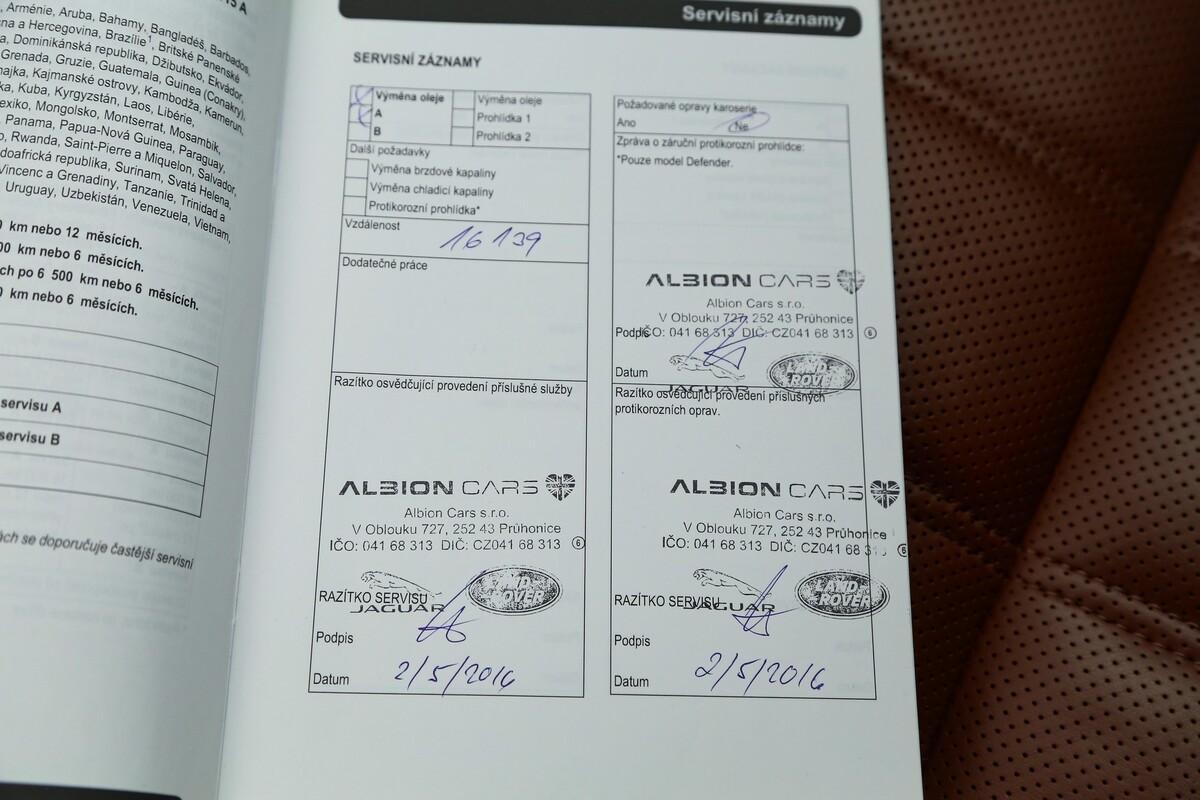 Arménie, Aruba, Bahamy, Bangladéš, Barbados,
na a Hercegovina, Brazílie¹, Britské Panenské
Dominikánská republika, Džibutsko, Ekvádor,
Grenada, Gruzie, Guatemala, Guinea (Conakry),
majka, Kajmanské ostrovy, Kambodža, Kamerun,
ka, Kuba, Kyrgyzstán, Laos, Libérie,
exiko, Mongolsko, Montserrat, Mosambik,
Panama, Papua-Nová Guinea, Paraguay,
Rwanda, Saint-Pierre a Miquelon, Salvador,
doafrická republika, Surinam, Svatá Helena,
Vincenc a Grenadiny, Tanzanie, Trinidad a
Uruguay, Uzbekistán, Venezuela, Vietnam,
km nebo 12 měsících.
00 km nebo 6 měsících.
ch po 6 500 km nebo 6 měsících.
0 km nebo 6 měsících.
servisu A
servisu B
ách se doporučuje častější servisní
Servisní záznamy
SERVISNÍ ZÁZNAMY
Výměna oleje Výměna oleje
A Prohlídka 1
B Prohlídka 2
Další požadavky
Výměna brzdové kapaliny
Výměna chladicí kapaliny
Protikorozní prohlídka*
Vzdálenost
16 139
Dodatečné práce
Razítko osvědčující provedení příslušné služby
ALBION CARS
Albion Cars s.r.o.
V Oblouku 727, 252 43 Průhonice
IČO: 041 68 313 DIČ: CZ041 68 313 6
RAZÍTKO SERVISU
JAGUAR
LAND ROVER
Podpis
Datum 2/5/2016
Požadované opravy karoserie
Ano Ne
Zpráva o záruční protikorozní prohlídce:
*Pouze model Defender.
ALBION CARS
Albion Cars s.r.o.
V Oblouku 727, 252 43 Průhonice
Podpis IČO: 041 68 313 DIČ: CZ041 68 313 6
Datum
JAGUAR
LAND ROVER
Razítko osvědčující provedení příslušných
protikorozních oprav.
ALBION CARS
Albion Cars s.r.o.
V Oblouku 727, 252 43 Průhonice
IČO: 041 68 313 DIČ: CZ041 68 313 6
RAZÍTKO SERVISU
JAGUAR
LAND ROVER
Podpis
Datum 2/5/2016